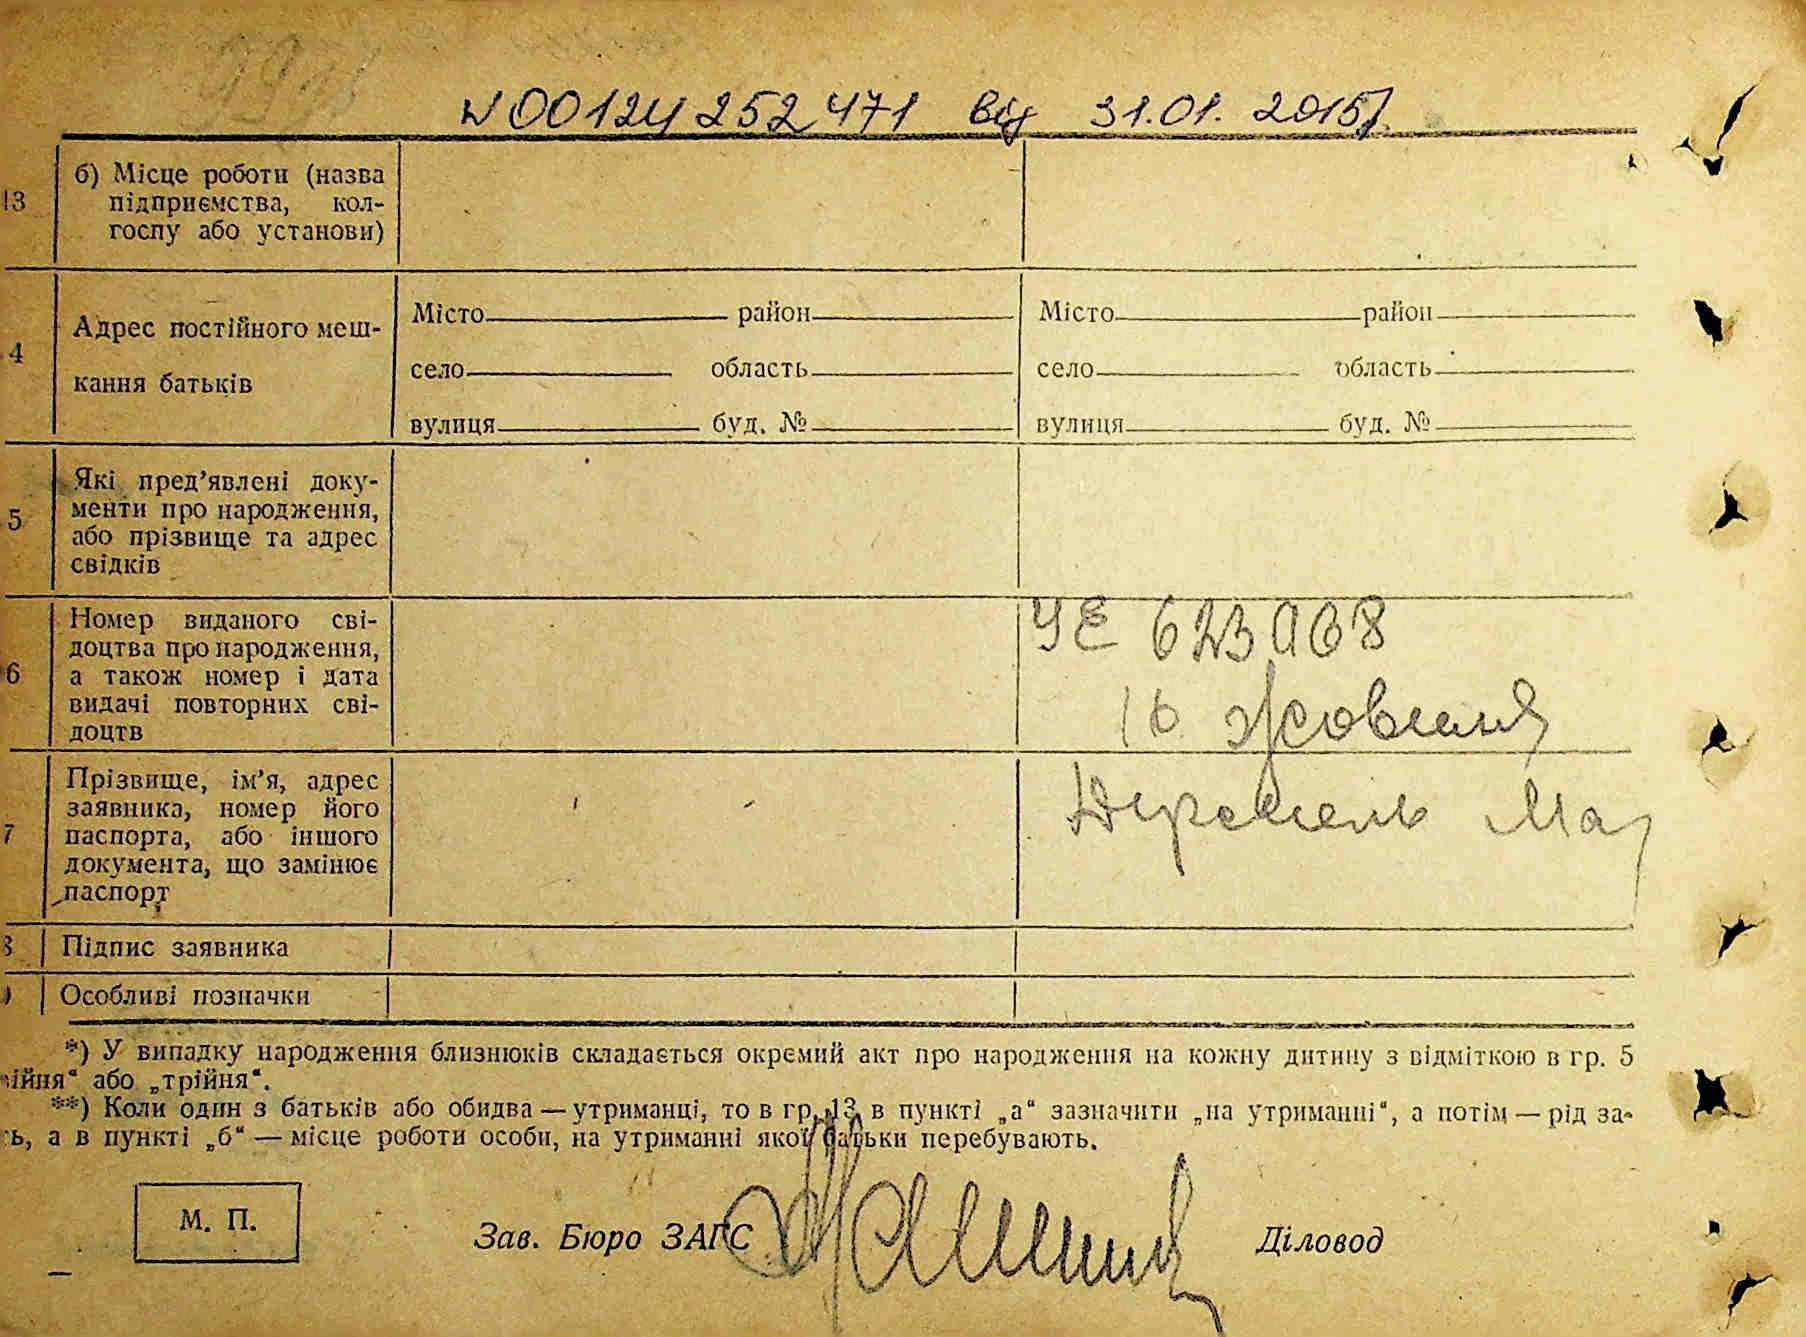 N 00124252471 від 31.01.2015р.
13
б) Місце роботи (назва
підприємства, кол-
госпу або установи)
4
Адрес постійного меш-
кання батьків
Місто район
село область
вулиця буд. №
Місто район
село область
вулиця буд. №
5
Які пред’явлені доку-
менти про народження,
або прізвище та адрес
свідків
6
Номер виданого сві-
доцтва про народження,
а також номер і дата
видачі повторних сві-
доцтв
УЕ 623068
16 Жовтня
7
Прізвище, ім’я, адрес
заявника, номер його
паспорта, або іншого
документа, що замінює
паспорт
8 Підпис заявника
9 Особливі позначки
*) У випадку народження близнюків складається окремий акт про народження на кожну дитину з відміткою в гр. 5
ійня“ або „трійня“.
**) Коли один з батьків або обидва — утриманці, то в гр. 13 в пункті „а“ зазначити „на утриманні“, а потім — рід за-
ь, а в пункті „б“ — місце роботи особи, на утриманні якої батьки перебувають.
М. П.
Зав. Бюро ЗАГС Діловод